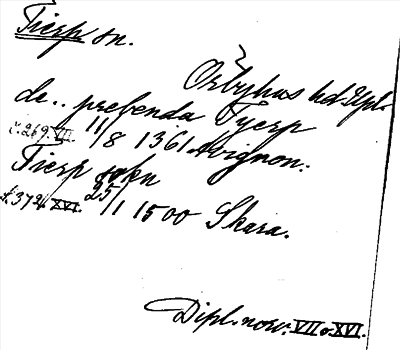 Tierp sn.
Örbyhus hd. Upl.
de.. prebenda Tyerp
č. 269. VII. 11/8 1361 Avignon.
Tierp sokn
f. 372. XVI. 25/1 1500 Skara.
Dipl. norv. VII o. XVI.